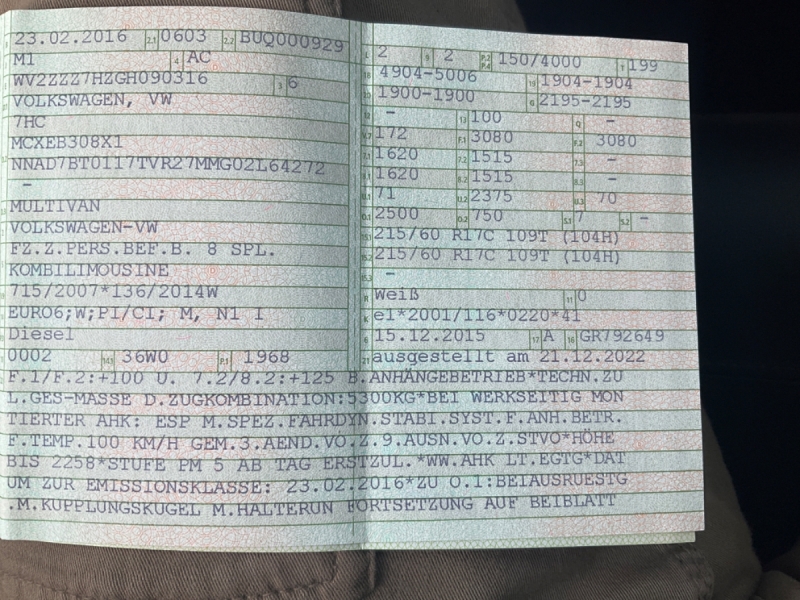 23.02.2016 2.1 0603 2.2 BUQ000929
M1 4 AC
WV2ZZZ7HZGH090316 3 6
VOLKSWAGEN, VW
7HC
MCXEB308X1
NNAD7BT0117TVR27MMG02L64272
–
MULTIVAN
VOLKSWAGEN-VW
FZ.Z.PERS.BEF.B. 8 SPL.
KOMBILIMOUSINE
715/2007*136/2014W
EURO6;W;PI/CI; M, N1 I
Diesel
0002 14.1 36W0 P.1 1968
L 2 9 2 P.2 P.4 150/4000 T 199
18 4904-5006 19 1904-1904
20 1900-1900 G 2195-2195
– 13 100 Q –
V.7 172 F.1 3080 F.2 3080
7.1 1620 7.2 1515 7.3 –
8.1 1620 8.2 1515 8.3 –
U.1 71 U.2 2375 U.3 70
O.1 2500 O.2 750 S.1 7 S.2 –
15.1 215/60 R17C 109T (104H)
15.2 215/60 R17C 109T (104H)
15.3 –
R Weiß 11 0
K e1*2001/116*0220*41
6 15.12.2015 17 A 16 GR792649
21 ausgestellt am 21.12.2022
F.1/F.2:+100 U. 7.2/8.2:+125 B.ANHÄNGEBETRIEB*TECHN.ZU
L.GES-MASSE D.ZUGKOMBINATION:5300KG*BEI WERKSEITIG MON
TIERTER AHK: ESP M.SPEZ.FAHRDYN.STABI.SYST.F.ANH.BETR.
F.TEMP.100 KM/H GEM.3.AEND.VO.Z.9.AUSN.VO.Z.STVO*HÖHE
BIS 2258*STUFE PM 5 AB TAG ERSTZUL.*WW.AHK LT.EGTG*DAT
UM ZUR EMISSIONSKLASSE: 23.02.2016*ZU O.1:BEIAUSRUESTG
.M.KUPPLUNGSKUGEL M.HALTERUN FORTSETZUNG AUF BEIBLATT